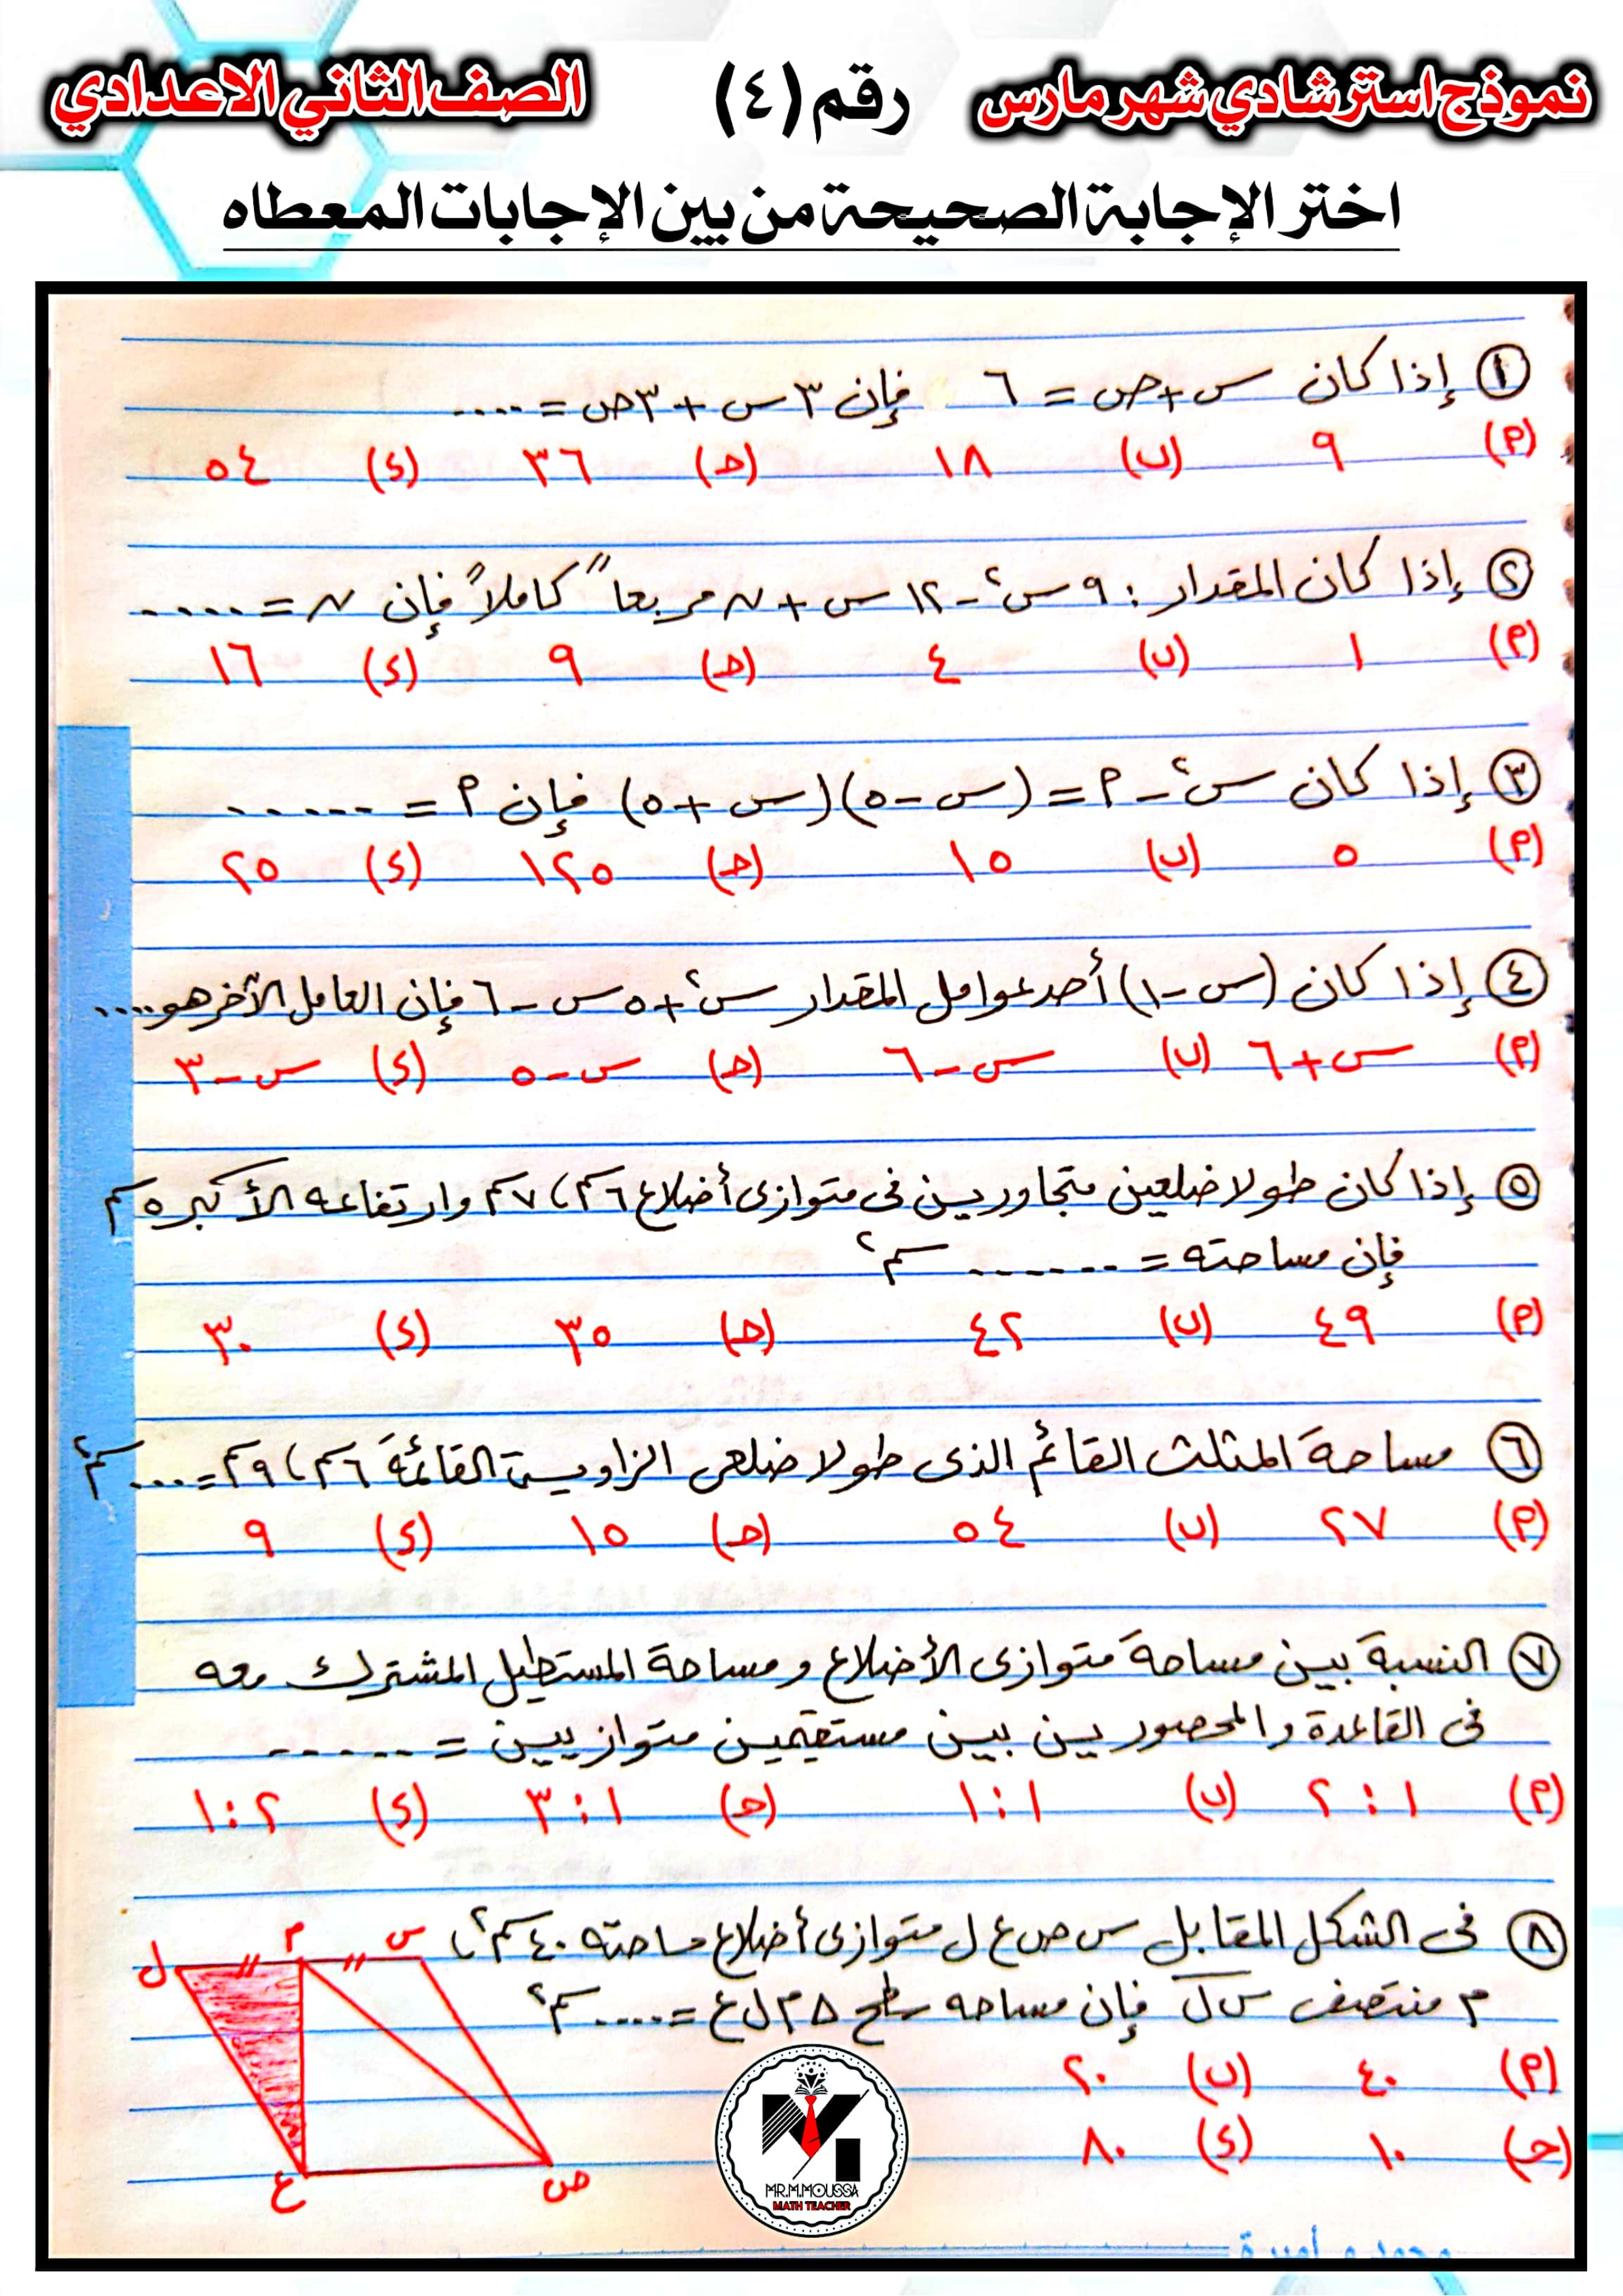 نموذج استرشادي شهر مارس رقم (٤) الصف الثاني الاعدادي
اختر الإجابة الصحيحة من بين الإجابات المعطاه
١ إذا كان س + ص = ٦ فإن ٣س + ٣ص = ....
(٩) ٩ (ب) ١٨ (ح) ٣٦ (د) ٥٤
٢ إذا كان المقدار: ٩س² - ١٢س + ن مربعاً كاملاً فإن ن = .....
(٩) ١ (ب) ٤ (ح) ٩ (د) ١٦
٣ إذا كان س² - ٩ = (س - ٥)(س + ٥) فإن ٩ = ......
(٩) ٥ (ب) ١٥ (ح) ١٢٥ (د) ٢٥
٤ إذا كان (س - ١) أحد عوامل المقدار س² + ٥س - ٦ فإن العامل الآخر هو ....
(٩) س + ٦ (ب) س - ٦ (ح) س - ٥ (د) س - ٣
٥ إذا كان طولا ضلعين متجاورين فى متوازى أضلاع ٦سم ، ٧سم وارتفاعه الأكبر ٥سم
فإن مساحته = ...... سم²
(٩) ٤٩ (ب) ٤٢ (ح) ٣٥ (د) ٣٠
٦ مساحة المثلث القائم الذى طولا ضلعى الزاوية القائمة ٦سم ، ٩سم = .... سم²
(٩) ٢٧ (ب) ٥٤ (ح) ١٥ (د) ٩
٧ النسبة بين مساحة متوازى الأضلاع ومساحة المستطيل المشترك معه
فى القاعدة والمحصورين بين مستقيمين متوازيين = ......
(٩) ١ : ٢ (ب) ١ : ١ (ح) ١ : ٣ (د) ٢ : ١
٨ فى الشكل المقابل س ص ع ل متوازى أضلاع مساحته ٤٠سم² ،
م منتصف س ل فإن مساحه سطح △ م ل ع = .... سم²
(٩) ٤٠ (ب) ٢٠
(ح) ١٠ (د) ٨٠
ل م س
ع ص
MR.M.MOUSSA
MATH TEACHER